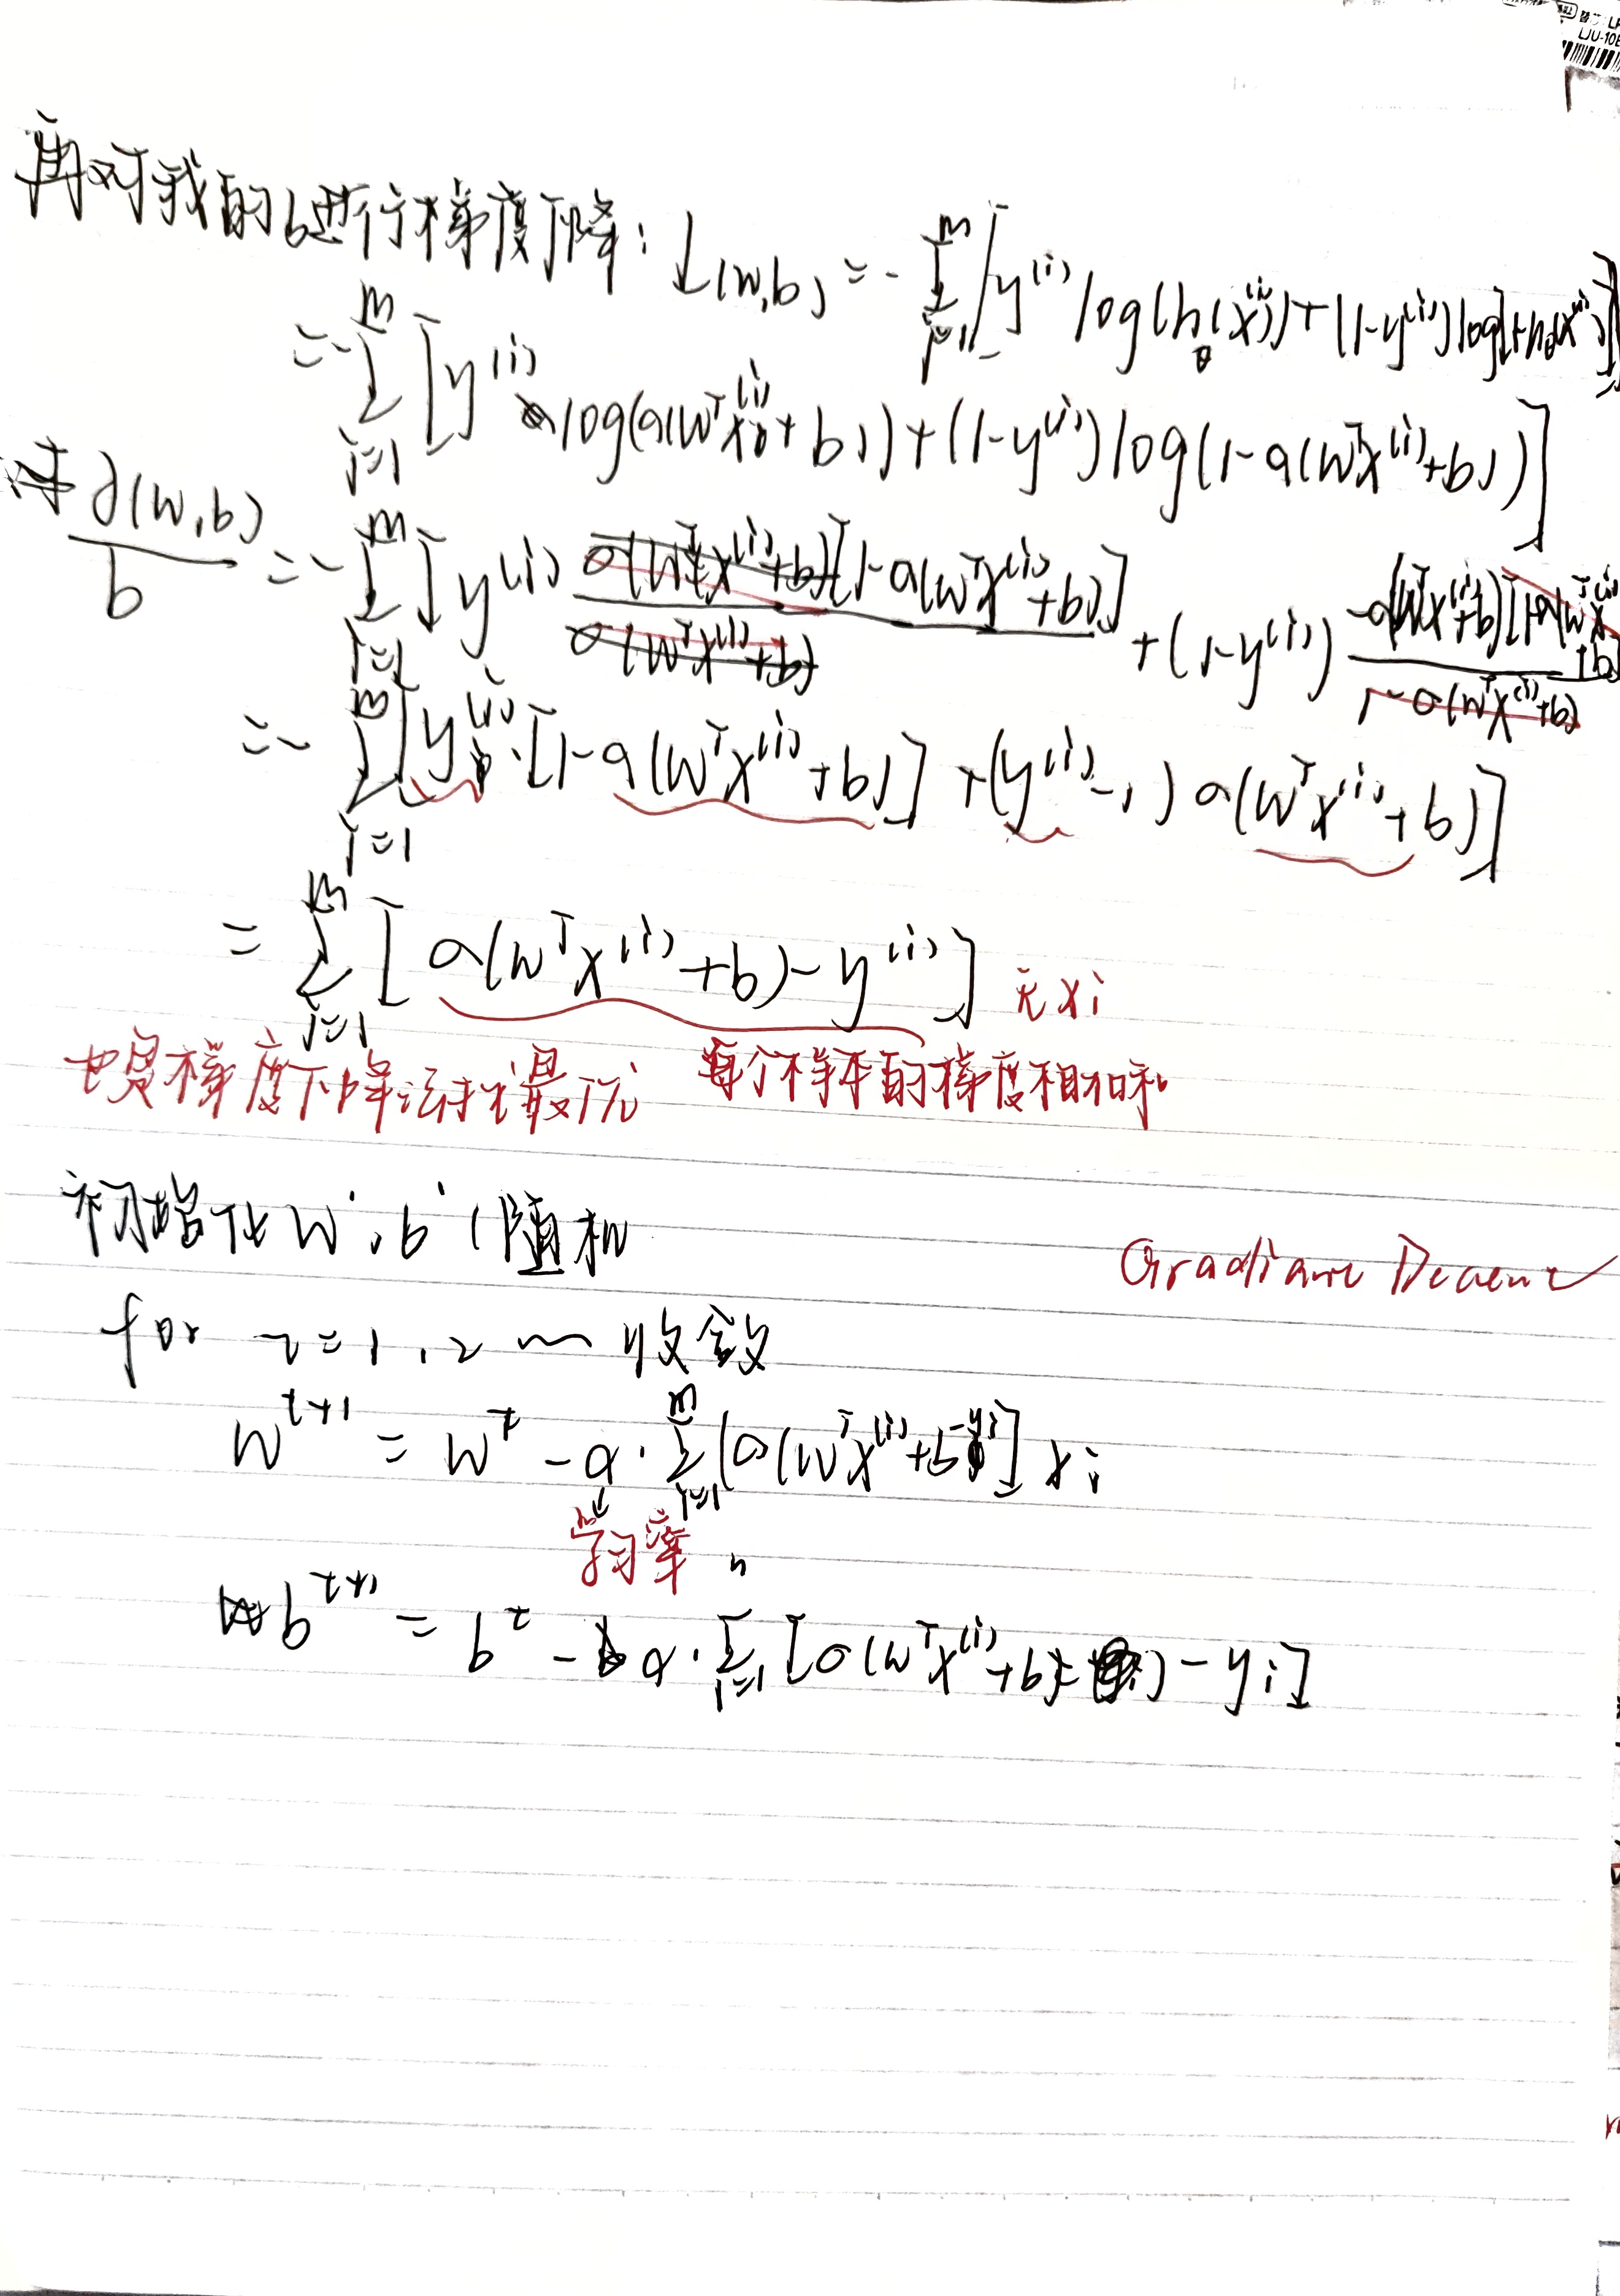 LJU-10
再对我的b进行梯度下降: L(w,b) = - ∑_{i=1}^{m} [y^{(i)} log(h_θ(x^{(i)})) + (1-y^{(i)}) log[1-h_θ(x^{(i)})]]
= - ∑_{i=1}^{m} [y^{(i)} log(σ(w^T x^{(i)} + b)) + (1-y^{(i)}) log(1-σ(w^T x^{(i)}+b))]
求 ∂(w,b)/b = - ∑_{i=1}^{m} [y^{(i)} σ(w^T x^{(i)}+b)[1-σ(w^T x^{(i)}+b)] / σ(w^T x^{(i)}+b) + (1-y^{(i)}) -σ(w^T x^{(i)}+b)[1-σ(w^T x^{(i)}+b)] / 1-σ(w^T x^{(i)}+b)
= - ∑_{i=1}^{m} [y^{(i)}·[1-σ(w^T x^{(i)}+b)] + (y^{(i)}-1) σ(w^T x^{(i)}+b)]
= ∑_{i=1}^{m} [σ(w^T x^{(i)}+b) - y^{(i)}] 无xi
也是梯度下降法求最优 每个样本的梯度相加和
初始化 w^1, b^1 (随机
Gradiant Decent
for t=1,2 ~ 收敛
w^{t+1} = w^t - α·∑_{i=1}^{m} [σ(w^T x^{(i)}+b)-yi] xi
学习率
b^{t+1} = b^t - α·∑_{i=1}^{n} [σ(w^T x^{(i)}+b) - yi]